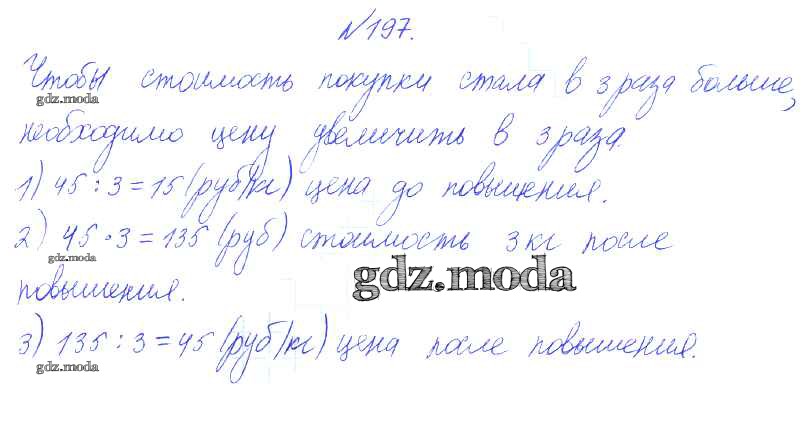 №197.
Чтобы стоимость покупки стала в 3 раза больше,
gdz.moda
необходимо цену увеличить в 3 раза.
gdz.moda
1) 45 : 3 = 15 (руб/кг) цена до повышения.
2) 45 · 3 = 135 (руб) стоимость 3 кг после
gdz.moda
повышения.
gdz.moda
3) 135 : 3 = 45 (руб/кг) цена после повышения.
gdz.moda